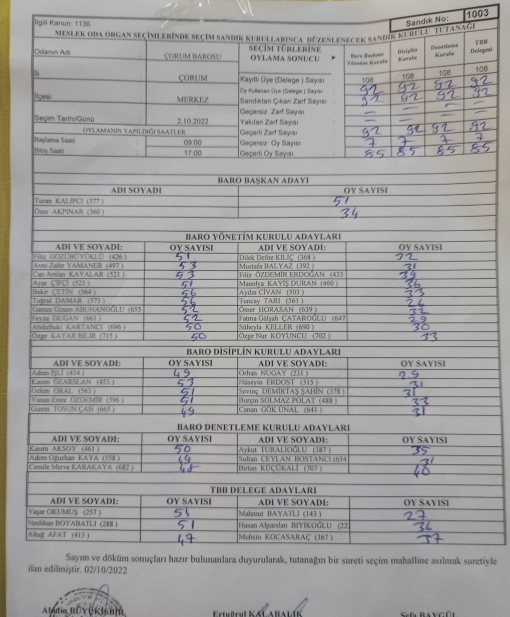 İlgili Kanun: 1136
Sandık No: 1003
MESLEK ODA ORGAN SEÇİMLERİNDE SEÇİM SANDIK KURULLARINCA DÜZENLENECEK SANDIK KURULU TUTANAĞI
Odanın Adı ÇORUM BAROSU SEÇİM TÜRLERİNE OYLAMA SONUCU Baro Başkanı Yönetim Kurulu Disiplin Kurulu Denetleme Kurulu TBB Delegesi
İli ÇORUM Kayıtlı Üye (Delege) Sayısı 108 108 108 108
Oy Kullanan Üye (Delege) Sayısı 92 92 92 92
İlçesi MERKEZ Sandıktan Çıkan Zarf Sayısı 92 92 92 92
Geçersiz Zarf Sayısı
Seçim Tarihi/Günü 2.10.2022 Yakılan Zarf Sayısı
OYLAMANIN YAPILDIĞI SAATLER Geçerli Zarf Sayısı 92 92 92 92
Başlama Saati 09:00 Geçersiz Oy Sayısı 7 7 7 7
Bitiş Saati 17:00 Geçerli Oy Sayısı 85 85 85 85
BARO BAŞKAN ADAYI
ADI SOYADI OY SAYISI
Turan KALIPCI (377) 51
Öner AKPINAR (360) 34
BARO YÖNETİM KURULU ADAYLARI
ADI VE SOYADI: OY SAYISI ADI VE SOYADI: OY SAYISI
Filiz GÖZÜBÜYÜKLÜ (426) 51 Dilek Defne KILIÇ (368)
Avni Zafer YAMANER (497) 53 Mustafa BALYAZ (392) 31
Can Arslan KAYALAR (521) 53 Filiz ÖZDEMİR ERDOĞAN (433
Ayşe ÇİFÇİ (523) 51 Manolya KAYIŞ DURAN (460) 36
Bekir ÇETİN (564) 56 Aydın CİVAN (503)
Tuğrul DAMAR (575) 56 Tuncay TARI (561)
Gamze Gizem ABUHANOĞLU (655 52 Ömer HORASAN (639)
Feyza DUGAN (661) 52 Fatma Gülşah ÇATAROĞLU (647 29
Abdulbaki KARTANCI (696) 50 Süheyla KELLER (690) 30
Özge KAYAR BİLİR (715) 50 Özge Nur KOYUNCU (702) 33
BARO DİSİPLİN KURULU ADAYLARI
ADI VE SOYADI: OY SAYISI ADI VE SOYADI: OY SAYISI
Adem İŞLİ (414) 49 Orhan NUGAY (231) 29
Kasım ÖZARSLAN (453) 53 Hüseyin ERDOST (315) 31
Özlem ORAL (563) 51 Sevinç DEMİRTAŞ ŞAHİN (378) 31
Yunus Emre ÖZDEMİR (596) 51 Burçin SOLMAZ POLAT (488) 33
Gizem TOSUN ÇAN (665) 49 Canan GÖK ÜNAL (641) 31
BARO DENETLEME KURULU ADAYLARI
ADI VE SOYADI: OY SAYISI ADI VE SOYADI: OY SAYISI
Kasım AKSOY (461) 50 Aykut TURALIOĞLU (387) 35
Adem Oğuzhan KAYA (558) 49 Sultan CEYLAN BOSTANCI (654 31
Cemile Merve KARAKAYA (682) 48 Birtan KÜÇÜKALİ (707) 40
TBB DELEGE ADAYLARI
ADI VE SOYADI: OY SAYISI ADI VE SOYADI: OY SAYISI
Yaşar OKUMUŞ (257) 51 Mahmut BAYATLI (143) 27
Neslihan BOYABATLI (288) 51 Hasan Alparslan BIYIKOĞLU (222 36
Altuğ AFAT (413) 47 Muhsin KOCASARAÇ (367) 37
Sayım ve döküm sonuçları hazır bulunanlara duyurularak, tutanağın bir sureti seçim mahalline asılmak suretiyle
ilan edilmiştir. 02/10/2022
Abidin BÜYÜKŞEHİR Ertuğrul KALABALIK Sefa BAYGÜL